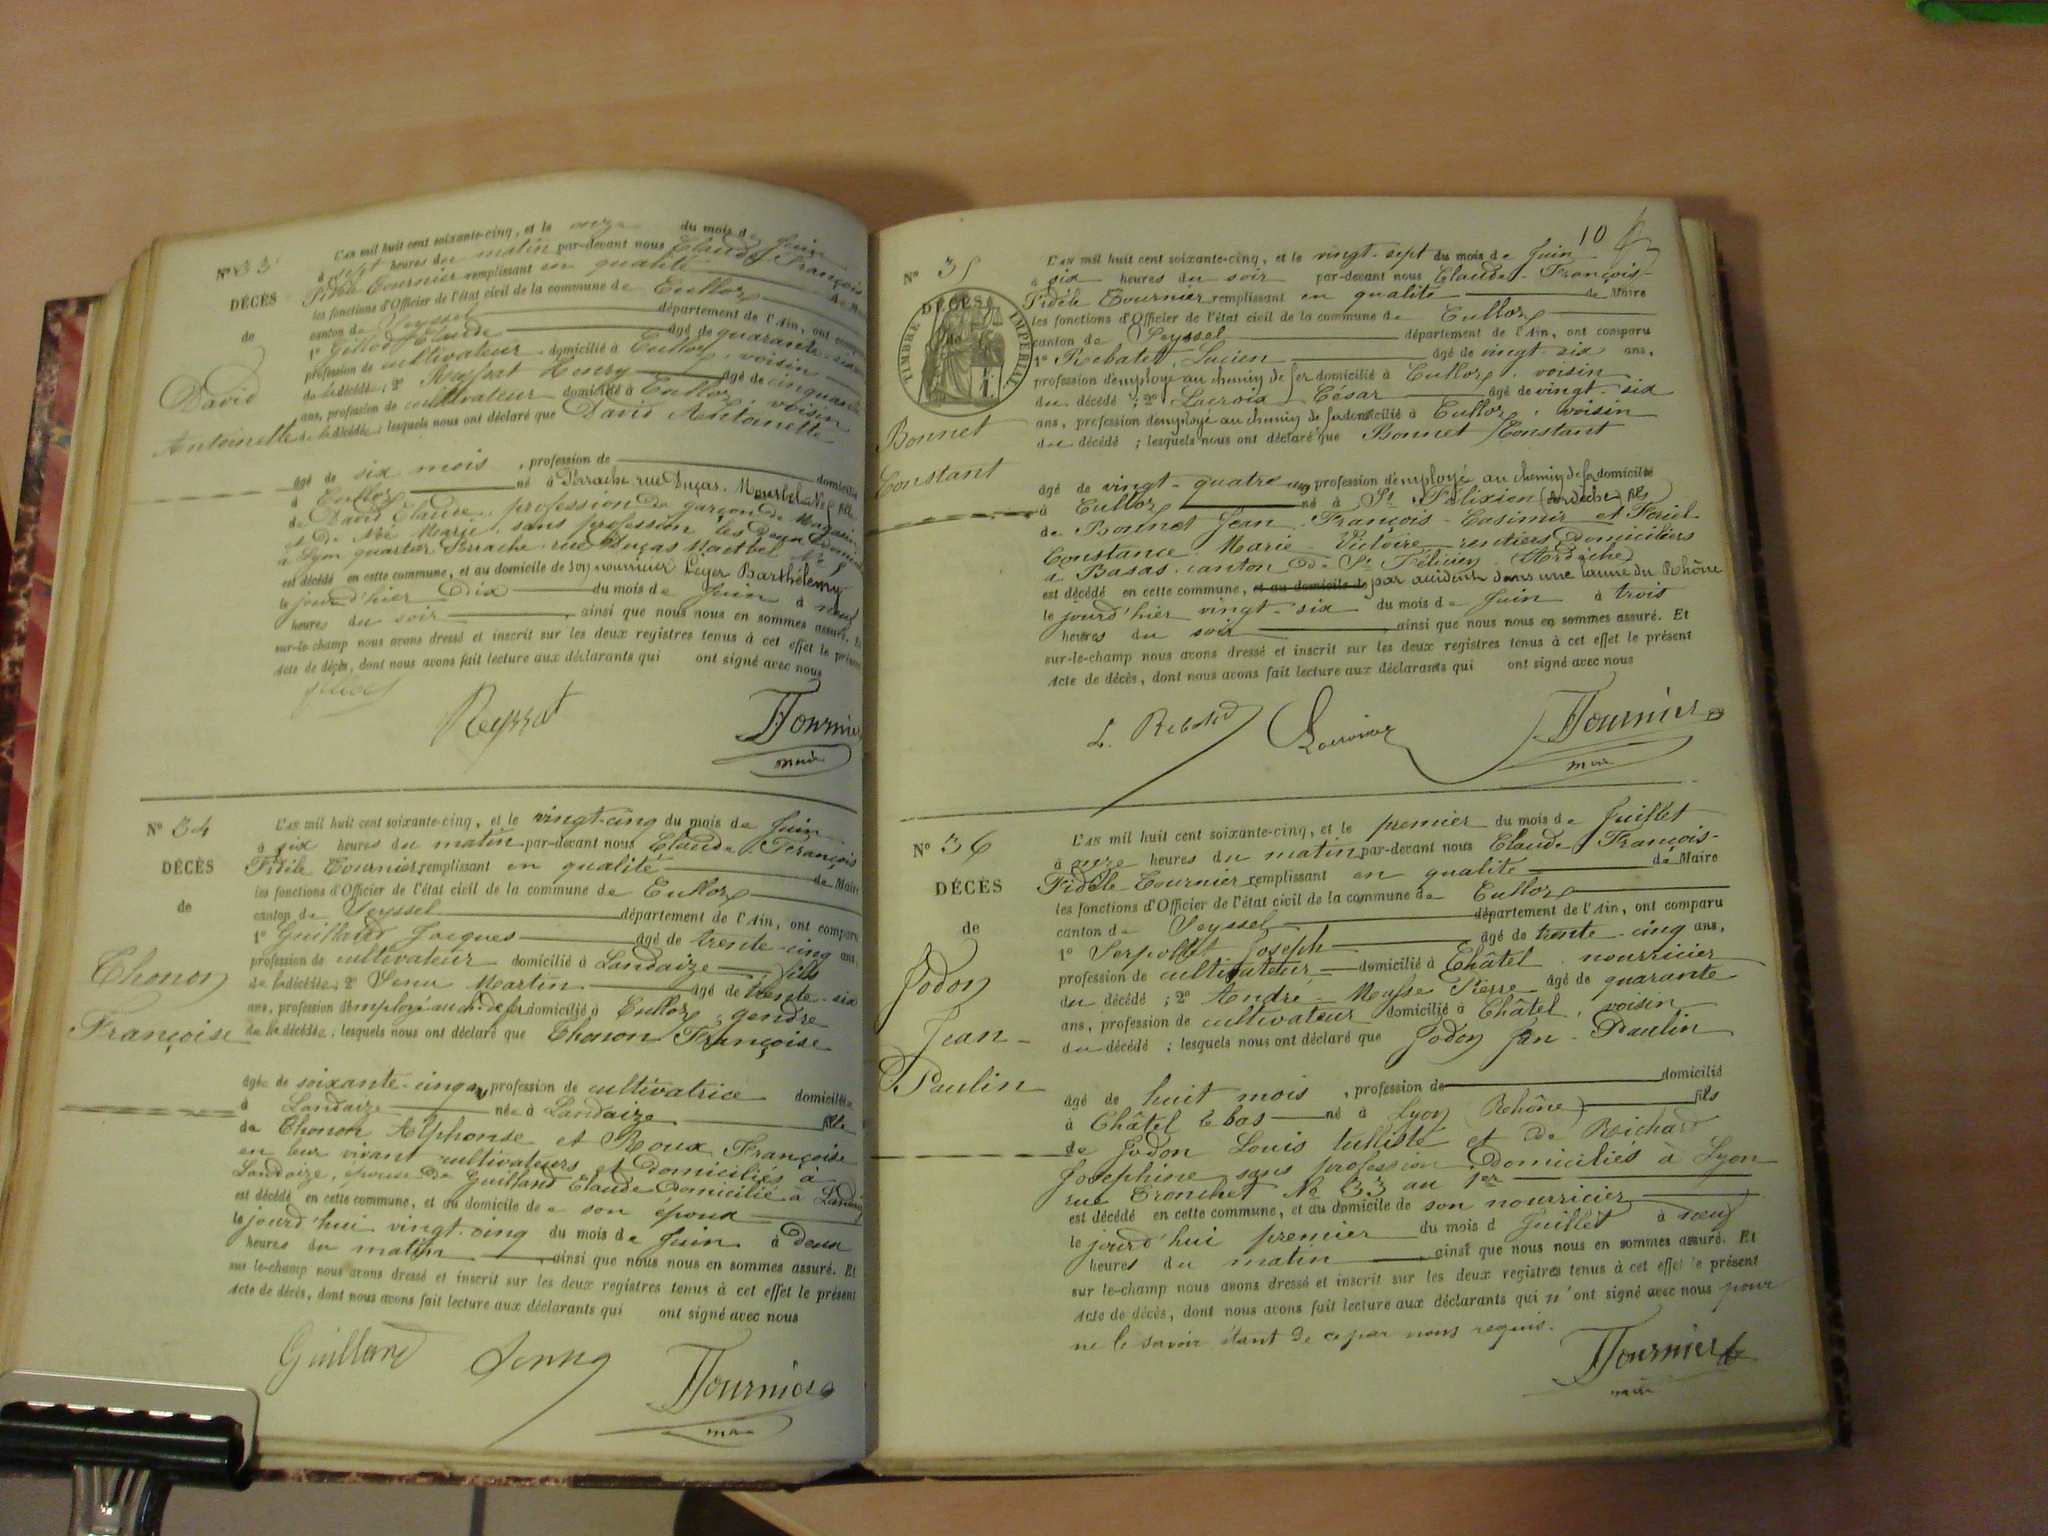 N° 33
DÉCÈS
de
David
Antoinette
L'AN mil huit cent soixante-cinq, et le onze du mois de Juin
à sept heures du matin par-devant nous Claude François
Fidèle Tournier remplissant en qualité de Maire
les fonctions d'Officier de l'état civil de la commune de Culloz
canton de Seyssel département de l'Ain, ont comparu
1° Claude âgé de quarante-six
profession de cultivateur domicilié à Culloz, voisin
de la décédée ; 2° Reyssat Henry âgé de cinquante
ans, profession de cultivateur domicilié à Culloz, voisin
de la décédée ; lesquels nous ont déclaré que David Antoinette
âgé de six mois, profession de domicilié
à Culloz né à Perrache rue
de David Claude, profession de garçon de Magasin
et de Marie, sans profession les deux
à Lyon quartier Perrache rue
est décédé en cette commune, et au domicile de son nourricier Leyer Barthélemy
le jourd'hier Dix du mois de Juin à neuf
heures du soir ainsi que nous nous en sommes assuré. Et
sur-le-champ nous avons dressé et inscrit sur les deux registres tenus à cet effet le présent
Acte de décès, dont nous avons fait lecture aux déclarants qui ont signé avec nous
Reyssat Tournier
maire
N° 34
DÉCÈS
de
Thonon
Françoise
L'AN mil huit cent soixante-cinq, et le vingt-cinq du mois de Juin
à six heures du matin par-devant nous Claude François
Fidèle Tournier remplissant en qualité de Maire
les fonctions d'Officier de l'état civil de la commune de Culloz
canton de Seyssel département de l'Ain, ont comparu
1° Guilland Jacques âgé de trente-cinq ans,
profession de cultivateur domicilié à Landaize, fils
de la décédée ; 2° Martin âgé de trente-six
ans, profession d'employé au ch. de fer domicilié à Culloz, gendre
de la décédée ; lesquels nous ont déclaré que Thonon Françoise
âgée de soixante-cinq ans, profession de cultivatrice domiciliée
à Landaize née à Landaize fille
de Thonon Alphonse et Roux Françoise
en leur vivant cultivateurs et domiciliés à
Landaize, épouse de Guilland Claude domicilié à Landaize
est décédé en cette commune, et au domicile de son époux
le jourd'hui vingt-cinq du mois de Juin à deux
heures du matin, ainsi que nous nous en sommes assuré. Et
sur-le-champ nous avons dressé et inscrit sur les deux registres tenus à cet effet le présent
Acte de décès, dont nous avons fait lecture aux déclarants qui ont signé avec nous
Guilland Tournier
maire
10
N° 35
TIMBRE IMPÉRIAL
DÉCÈS
de
Bonnet
Constant
L'AN mil huit cent soixante-cinq, et le vingt-sept du mois de Juin
à six heures du soir par-devant nous Claude-François-
Fidèle Tournier remplissant en qualité de Maire
les fonctions d'Officier de l'état civil de la commune de Culloz
canton de Seyssel département de l'Ain, ont comparu
1° Rebatet, Lucien âgé de vingt-six ans,
profession d'employé au chemin de fer domicilié à Culloz, voisin
du décédé ; 2° Lacroix César âgé de vingt-six
ans, profession d'employé au chemin de fer domicilié à Culloz, voisin
du décédé ; lesquels nous ont déclaré que Bonnet Constant
âgé de vingt-quatre ans profession d'employé au chemin de fer domicilié
à Culloz né à St Félixien (Ardèche) fils
de Bonnet Jean François-Casimir et Foriel
Constance Marie Victoire rentiers domiciliers
à Basas canton de St Félicien (Ardèche)
est décédé en cette commune, et au domicile de par accident dans une laune du Rhône
le jourd'hier vingt-six du mois de Juin à trois
heures du soir ainsi que nous nous en sommes assuré. Et
sur-le-champ nous avons dressé et inscrit sur les deux registres tenus à cet effet le présent
Acte de décès, dont nous avons fait lecture aux déclarants qui ont signé avec nous
L. Rebatet Lacroix Tournier
maire
N° 36
DÉCÈS
de
Jodon
Jean-
Paulin
L'AN mil huit cent soixante-cinq, et le premier du mois de Juillet
à onze heures du matin par-devant nous Claude François-
Fidèle Tournier remplissant en qualité de Maire
les fonctions d'Officier de l'état civil de la commune de Culloz
canton de Seyssel département de l'Ain, ont comparu
1° Serpollet Joseph âgé de trente-cinq ans,
profession de cultivateur domicilié à Châtel, nourricier
du décédé ; 2° André-Masse Pierre âgé de quarante
ans, profession de cultivateur domicilié à Châtel, voisin
du décédé ; lesquels nous ont déclaré que Jodon Jean-Paulin
âgé de huit mois, profession de domicilié
à Châtel le bas né à Lyon (Rhône) fils
de Jodon Louis tulliste et de Richard
Josephine sans profession, domiciliés à Lyon
rue Tronchet No 33 au 1er
est décédé en cette commune, et au domicile de son nourricier
le jourd'hui premier du mois d Juillet à neuf
heures du matin, ainsi que nous nous en sommes assuré. Et
sur-le-champ nous avons dressé et inscrit sur les deux registres tenus à cet effet le présent
Acte de décès, dont nous avons fait lecture aux déclarants qui n'ont signé avec nous pour
ne le savoir étant de ce par nous requis.
Tournier
maire